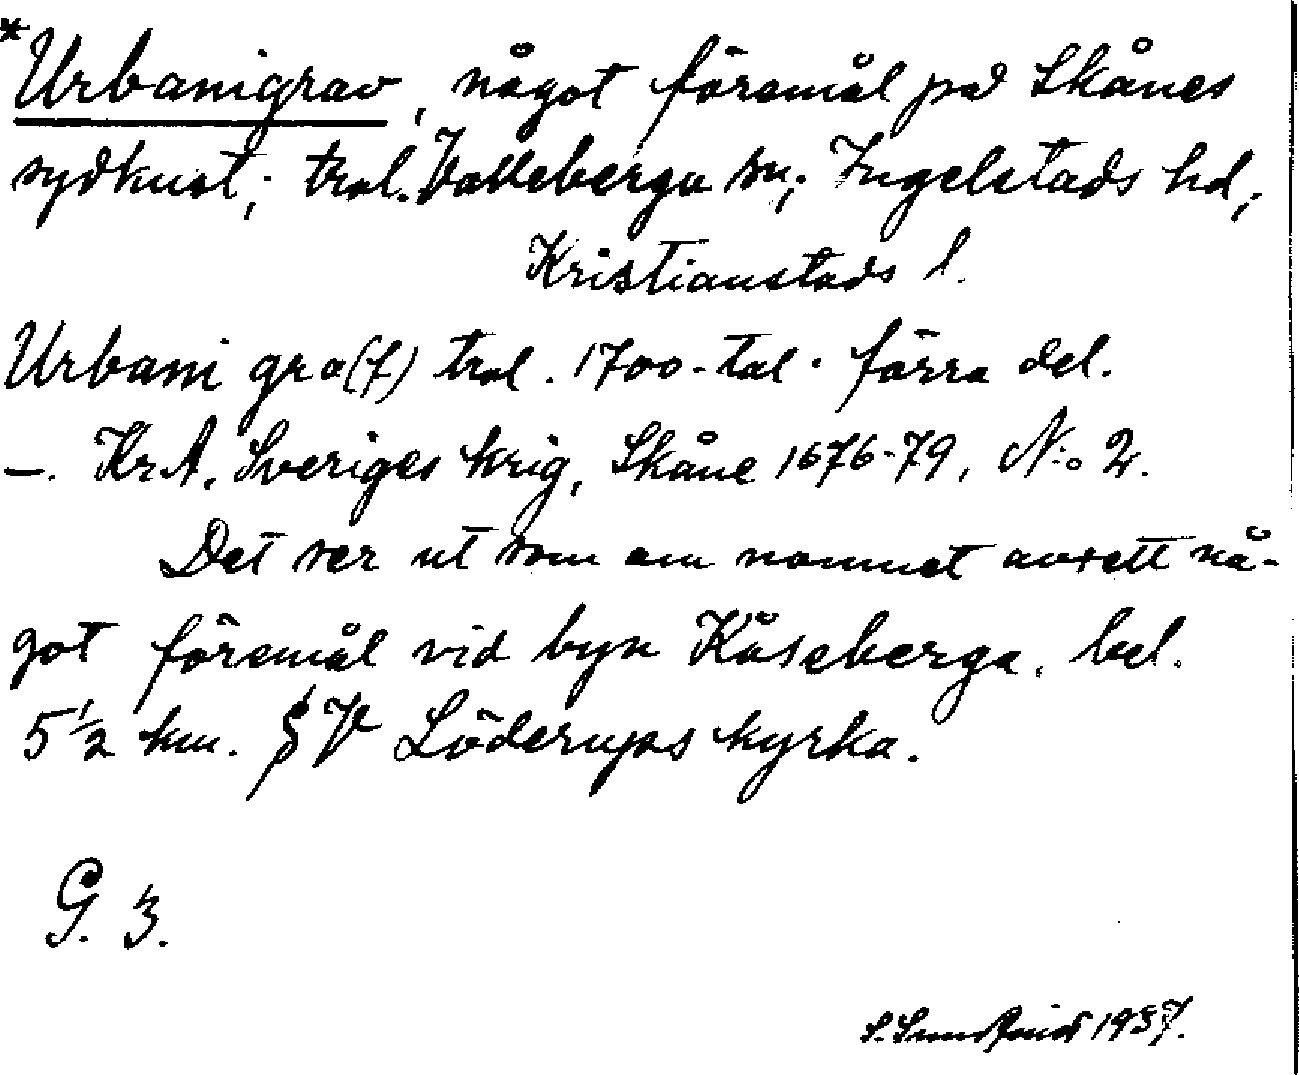 *Urbanigrav, något föremål på Skånes
sydkust; trol. Valleberga sn; Ingelstads hd,
Kristianstads l.
Urbani gra(f) trol. 1700-tal. förra del.
—. KrA, Sveriges krig, Skåne 1676-79, N:o 2.
Det ser ut som om namnet avsett nå-
got föremål vid byn Kåseberga, bel.
5 1/2 km. V Löderups kyrka.
G. 3.
S. 1937.